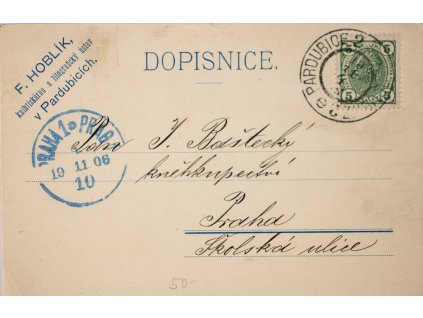 F. HOBLÍK,
knihtiskárna a litografický ústav
v Pardubicích.
DOPISNICE.
PARDUBICE 2
5
5 5
PRAHA 1 PRAG
19 11 06
10
Pán J. Baštecký
kněhkupectví
Praha
Školská ulice
50-